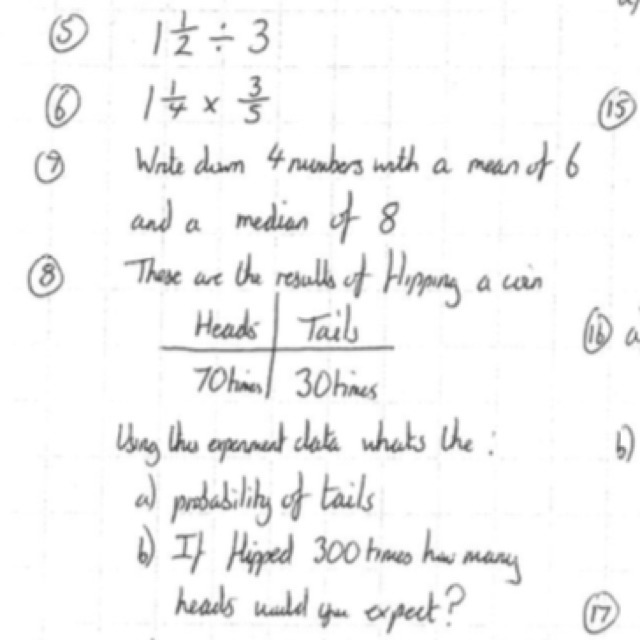 ⑤ 1 1/2 ÷ 3
⑥ 1 1/4 × 3/5
⑦ Write down 4 numbers with a mean of 6
and a median of 8
⑧ These are the results of flipping a coin
Heads | Tails
70 times | 30 times
Using this experiment data whats the :
a) probability of tails
b) If flipped 300 times how many
heads would you expect?
⑮
⑯ a
b)
⑰